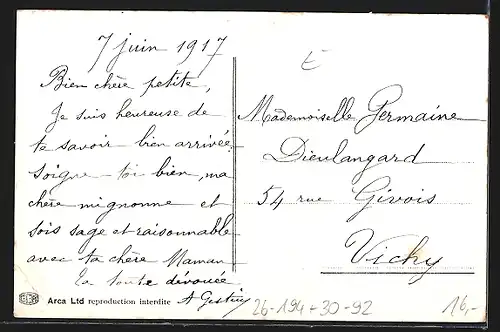 7 juin 1917
Bien chère petite,
Je suis heureuse de
te savoir bien arrivée,
soigne-toi bien, ma
chère mignonne et
sois sage et raisonnable
avec ta chère Maman
Ta toute dévouée
Arca Ltd reproduction interdite
E
Mademoiselle Germaine
Dieulangard
54 rue Givois
Vichy
26-194-30-92
16,-